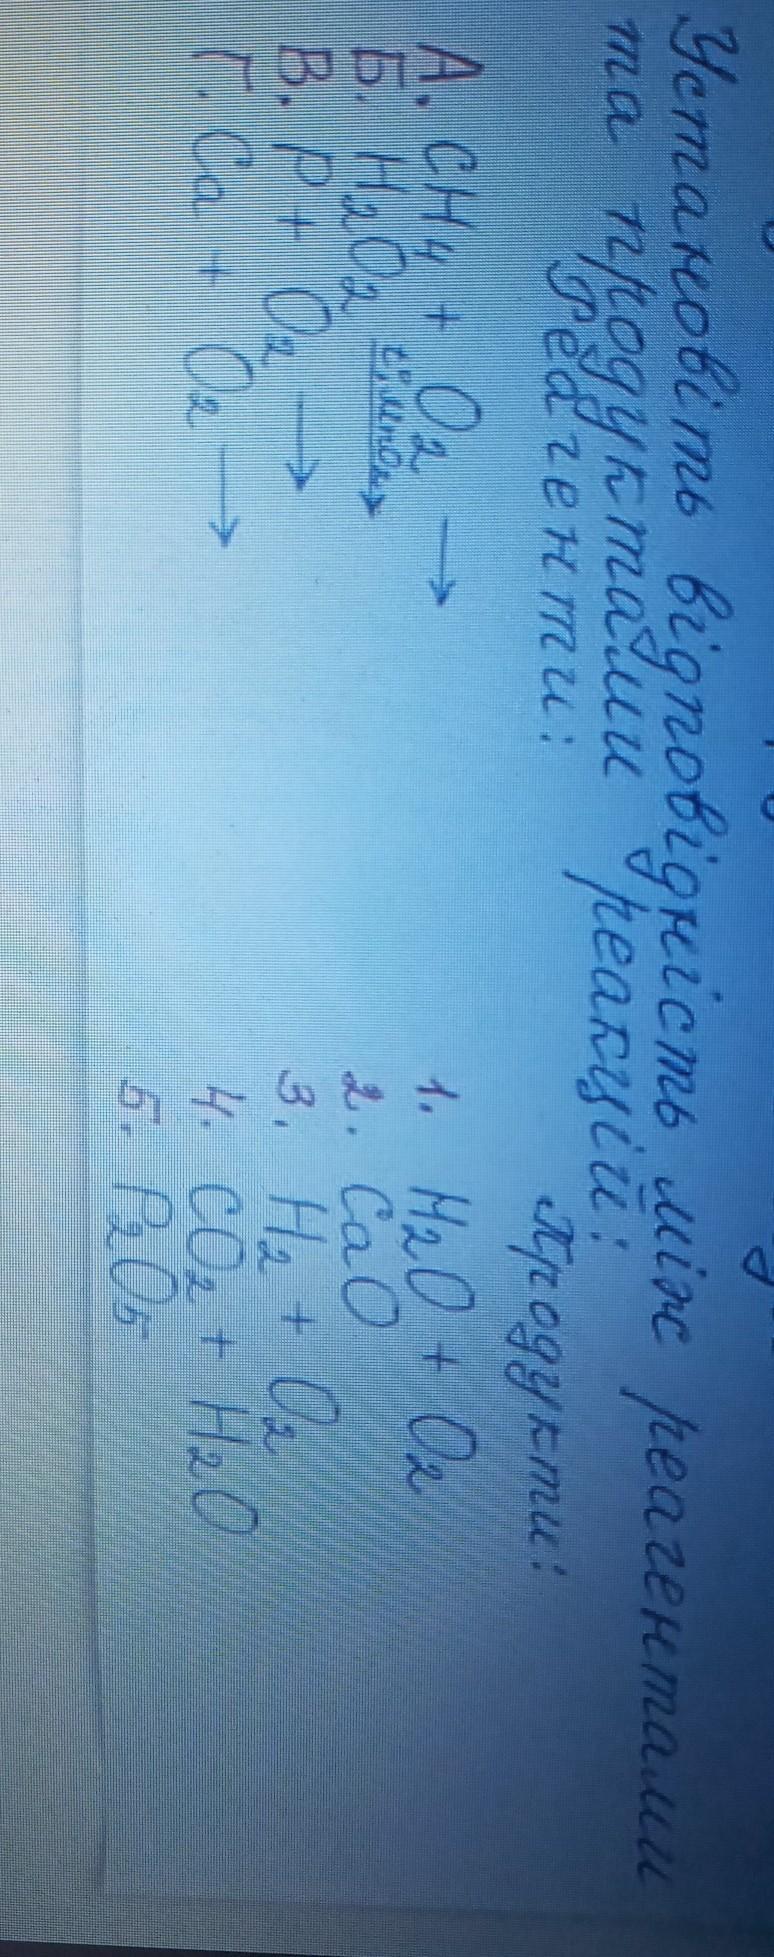 Установіть відповідність між реагентами
та продуктами реакцій:
Реагенти:
Продукти:
А. CH4 + O2 →
Б. H2O2
В. P + O2 →
Г. Ca + O2 →
1. H2O + O2
2. CaO
3. H2 + O2
4. CO2 + H2O
5. P2O5